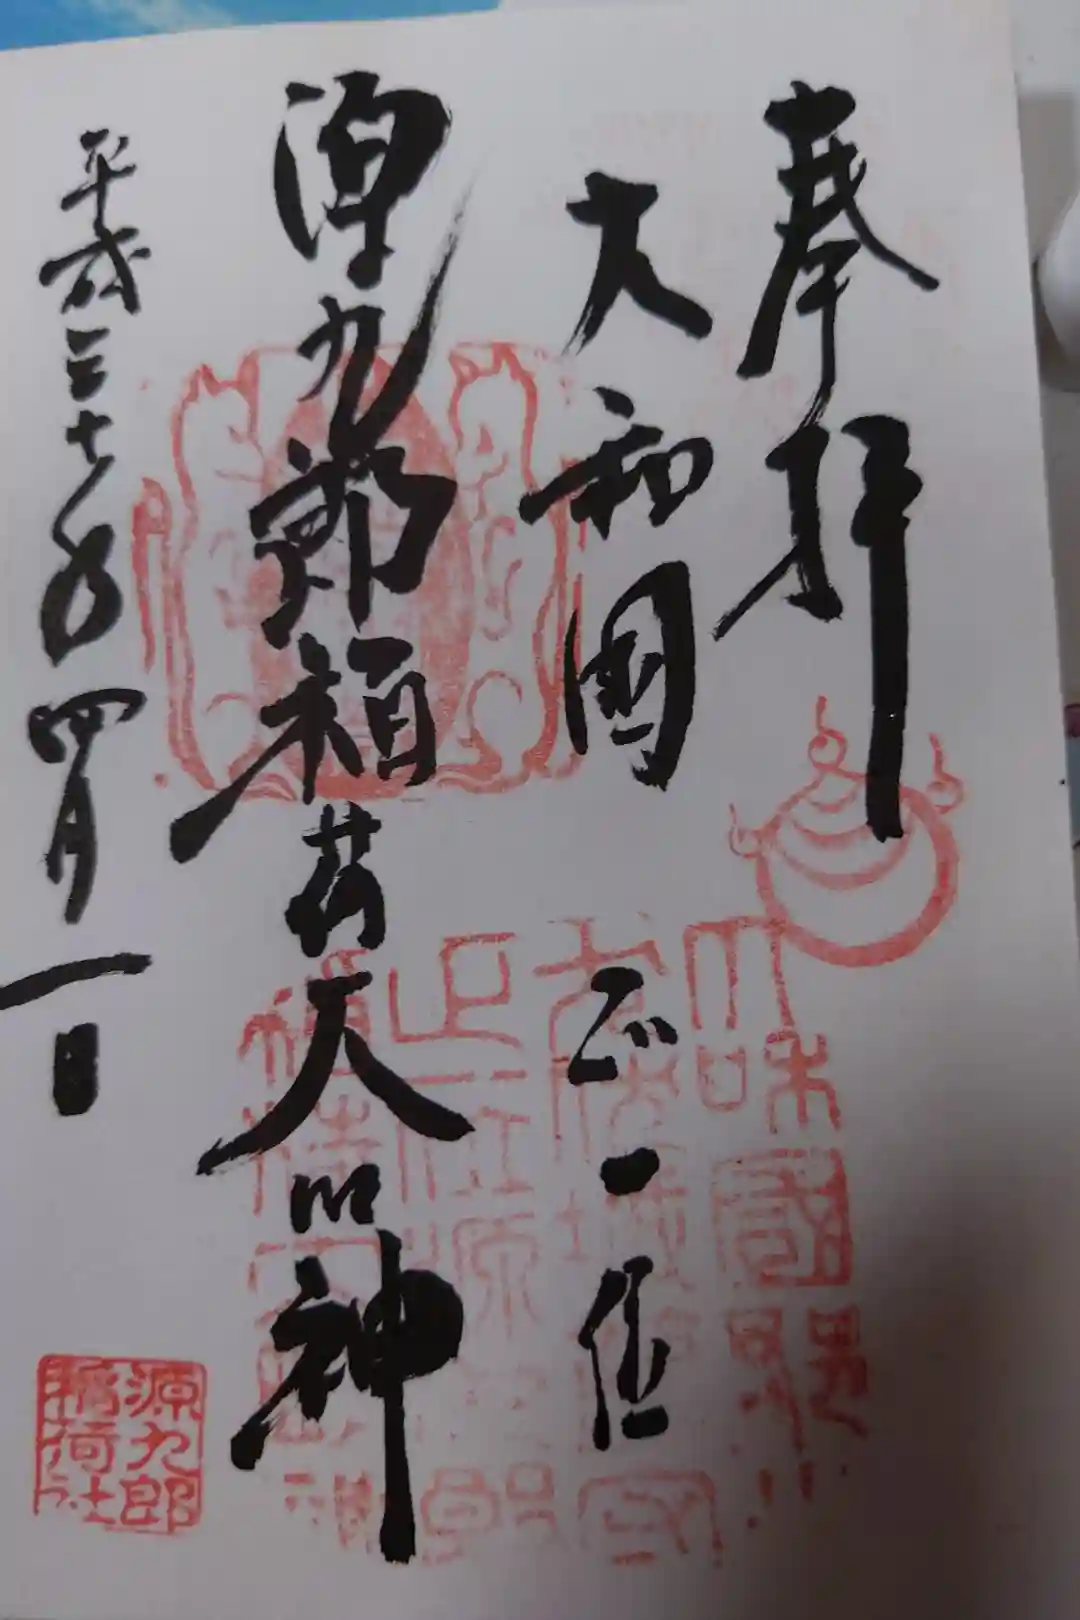 奉拝
大和國 正一位
源九郎稲荷大明神
平成三十年四月一日
源九郎
稲荷社